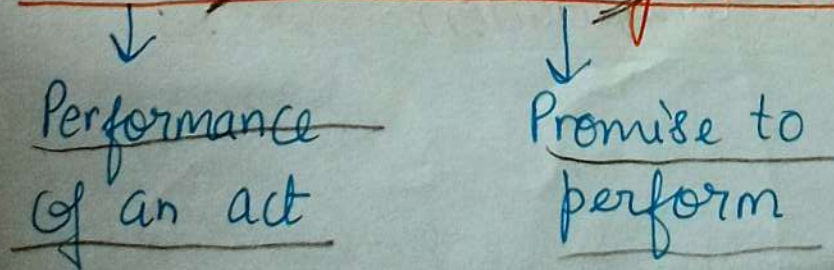 Performance
of an act
Promise to
perform